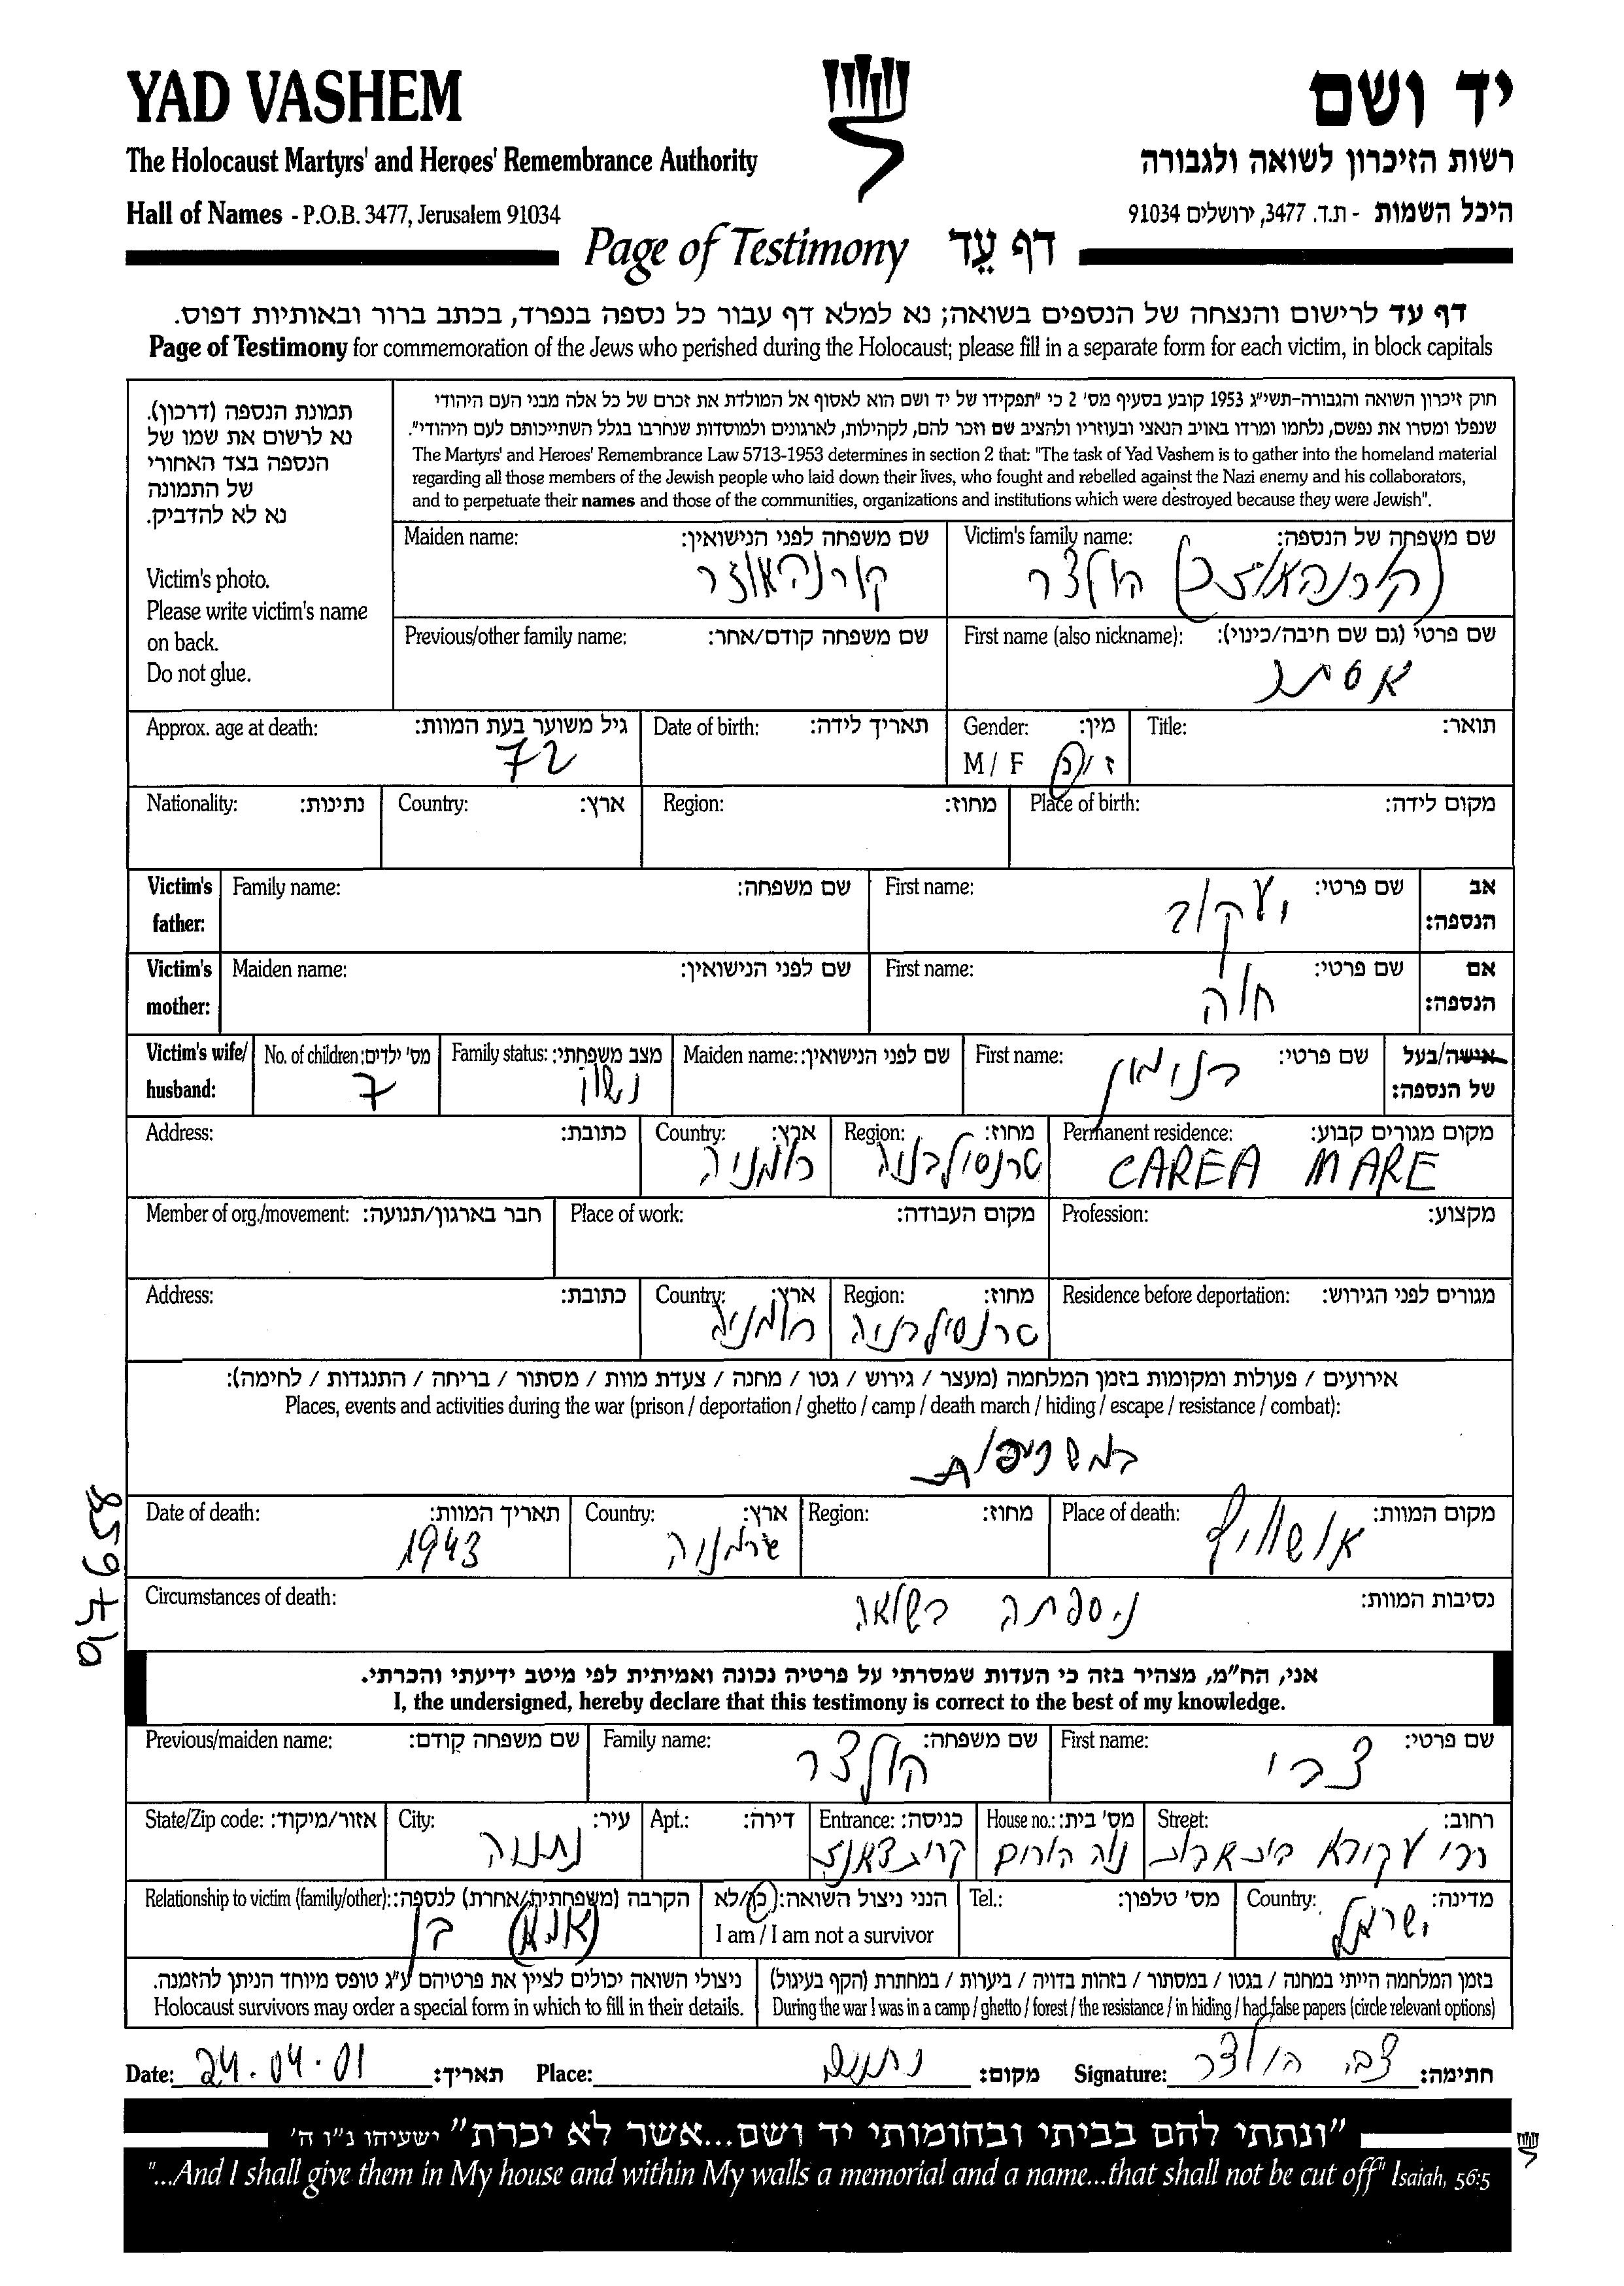 YAD VASHEM
יד ושם
The Holocaust Martyrs' and Heroes' Remembrance Authority
רשות הזיכרון לשואה ולגבורה
Hall of Names - P.O.B. 3477, Jerusalem 91034
היכל השמות - ת.ד. 3477, ירושלים 91034
Page of Testimony דף עֵד
דף עד לרישום והנצחה של הנספים בשואה; נא למלא דף עבור כל נספה בנפרד, בכתב ברור ובאותיות דפוס.
Page of Testimony for commemoration of the Jews who perished during the Holocaust; please fill in a separate form for each victim, in block capitals
תמונת הנספה (דרכון).
נא לרשום את שמו של
הנספה בצד האחורי
של התמונה
נא לא להדביק.
Victim's photo.
Please write victim's name
on back.
Do not glue.
חוק זיכרון השואה והגבורה-תשי"ג 1953 קובע בסעיף מס' 2 כי "תפקידו של יד ושם הוא לאסוף אל המולדת את זכרם של כל אלה מבני העם היהודי
שנפלו ומסרו את נפשם, נלחמו ומרדו באויב הנאצי ובעוזריו ולהציב שם וזכר להם, לקהילות, לארגונים ולמוסדות שנחרבו בגלל השתייכותם לעם היהודי".
The Martyrs' and Heroes' Remembrance Law 5713-1953 determines in section 2 that: "The task of Yad Vashem is to gather into the homeland material
regarding all those members of the Jewish people who laid down their lives, who fought and rebelled against the Nazi enemy and his collaborators,
and to perpetuate their names and those of the communities, organizations and institutions which were destroyed because they were Jewish".
שם משפחה של הנספה: Victim's family name:
(קורנהאוזר) הולצר
שם משפחה לפני הנישואין: Maiden name:
קורנהאוזר
שם פרטי (גם שם חיבה/כינוי): First name (also nickname):
אסתר
שם משפחה קודם/אחר: Previous/other family name:
תואר: Title:
מין: Gender:
ז / נ M / F
תאריך לידה: Date of birth:
גיל משוער בעת המוות: Approx. age at death:
72
מקום לידה: Place of birth:
מחוז: Region:
ארץ: Country:
נתינות: Nationality:
אב הנספה: שם פרטי: First name:
יעקוב
שם משפחה: Family name: Victim's father:
אם הנספה: שם פרטי: First name:
חוה
שם לפני הנישואין: Maiden name: Victim's mother:
אישה/בעל של הנספה: שם פרטי: First name:
בנימין
שם לפני הנישואין: Maiden name:
מצב משפחתי: Family status:
נשוי
מס' ילדים: No. of children:
7
Victim's wife/ husband:
מקום מגורים קבוע: Permanent residence:
CAREA MARE
מחוז: Region:
טרנסילבניה
ארץ: Country:
רומניה
כתובת: Address:
מקצוע: Profession:
מקום העבודה: Place of work:
חבר בארגון/תנועה: Member of org./movement:
מגורים לפני הגירוש: Residence before deportation:
מחוז: Region:
טרנסילבניה
ארץ: Country:
רומניה
כתובת: Address:
אירועים / פעולות ומקומות בזמן המלחמה (מעצר / גירוש / גטו / מחנה / צעדת מוות / מסתור / בריחה / התנגדות / לחימה):
Places, events and activities during the war (prison / deportation / ghetto / camp / death march / hiding / escape / resistance / combat):
במשריפות
מקום המוות: Place of death:
אושוויץ
מחוז: Region:
ארץ: Country:
גרמניה
תאריך המוות: Date of death:
1943
נסיבות המוות: Circumstances of death:
ניספתה בשואה
אני, הח"מ, מצהיר בזה כי העדות שמסרתי על פרטיה נכונה ואמיתית לפי מיטב ידיעתי והכרתי.
I, the undersigned, hereby declare that this testimony is correct to the best of my knowledge.
שם פרטי: First name:
צבי
שם משפחה: Family name:
הולצר
שם משפחה קודם: Previous/maiden name:
רחוב: Street:
מס' בית: House no.:
כניסה: Entrance:
קרית צאנז
דירה: Apt.:
עיר: City:
נתניה
אזור/מיקוד: State/Zip code:
מדינה: Country:
ישראל
מס' טלפון: Tel.:
הנני ניצול השואה: כן/לא
I am / I am not a survivor
הקרבה (משפחתית/אחרת) לנספה: Relationship to victim (family/other):
(אמא) בן
בזמן המלחמה הייתי במחנה / בגטו / במסתור / בזהות בדויה / ביערות / במחתרת (הקף בעיגול)
During the war I was in a camp / ghetto / forest / the resistance / in hiding / had false papers (circle relevant options)
ניצולי השואה יכולים לציין את פרטיהם ע"ג טופס מיוחד הניתן להזמנה.
Holocaust survivors may order a special form in which to fill in their details.
חתימה: צבי הולצר Signature:
מקום: נתניה Place:
תאריך: 24.04.01 Date:
"ונתתי להם בביתי ובחומותי יד ושם...אשר לא יכרת" ישעיהו נ"ו ה'
"...And I shall give them in My house and within My walls a memorial and a name...that shall not be cut off" Isaiah, 56:5